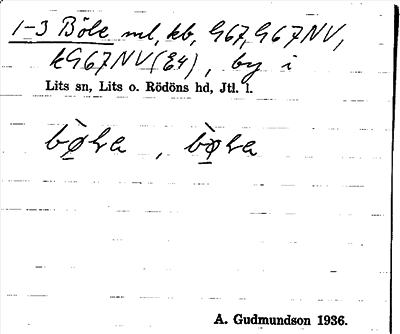 1-3 Böle ml, kb, G67, G67NV,
kG67NV(E4), by i
Lits sn, Lits o. Rödöns hd, Jtl. l.
A. Gudmundson 1936.